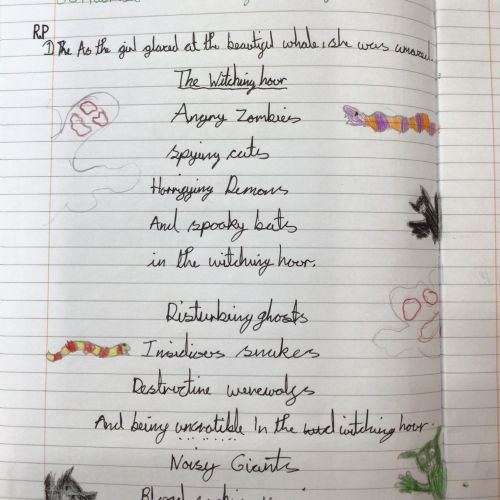 RP
1) The As the girl glared at the beautiful whale, she was amazed.
The Witching hour
Angry Zombies
spying cats
Horrifying Demons
And spooky bats
in the witching hour.
Disturbing ghosts
Insidious snakes
Destructive werewolfs
And being in the witching hour.
Noisy Giants
Blood